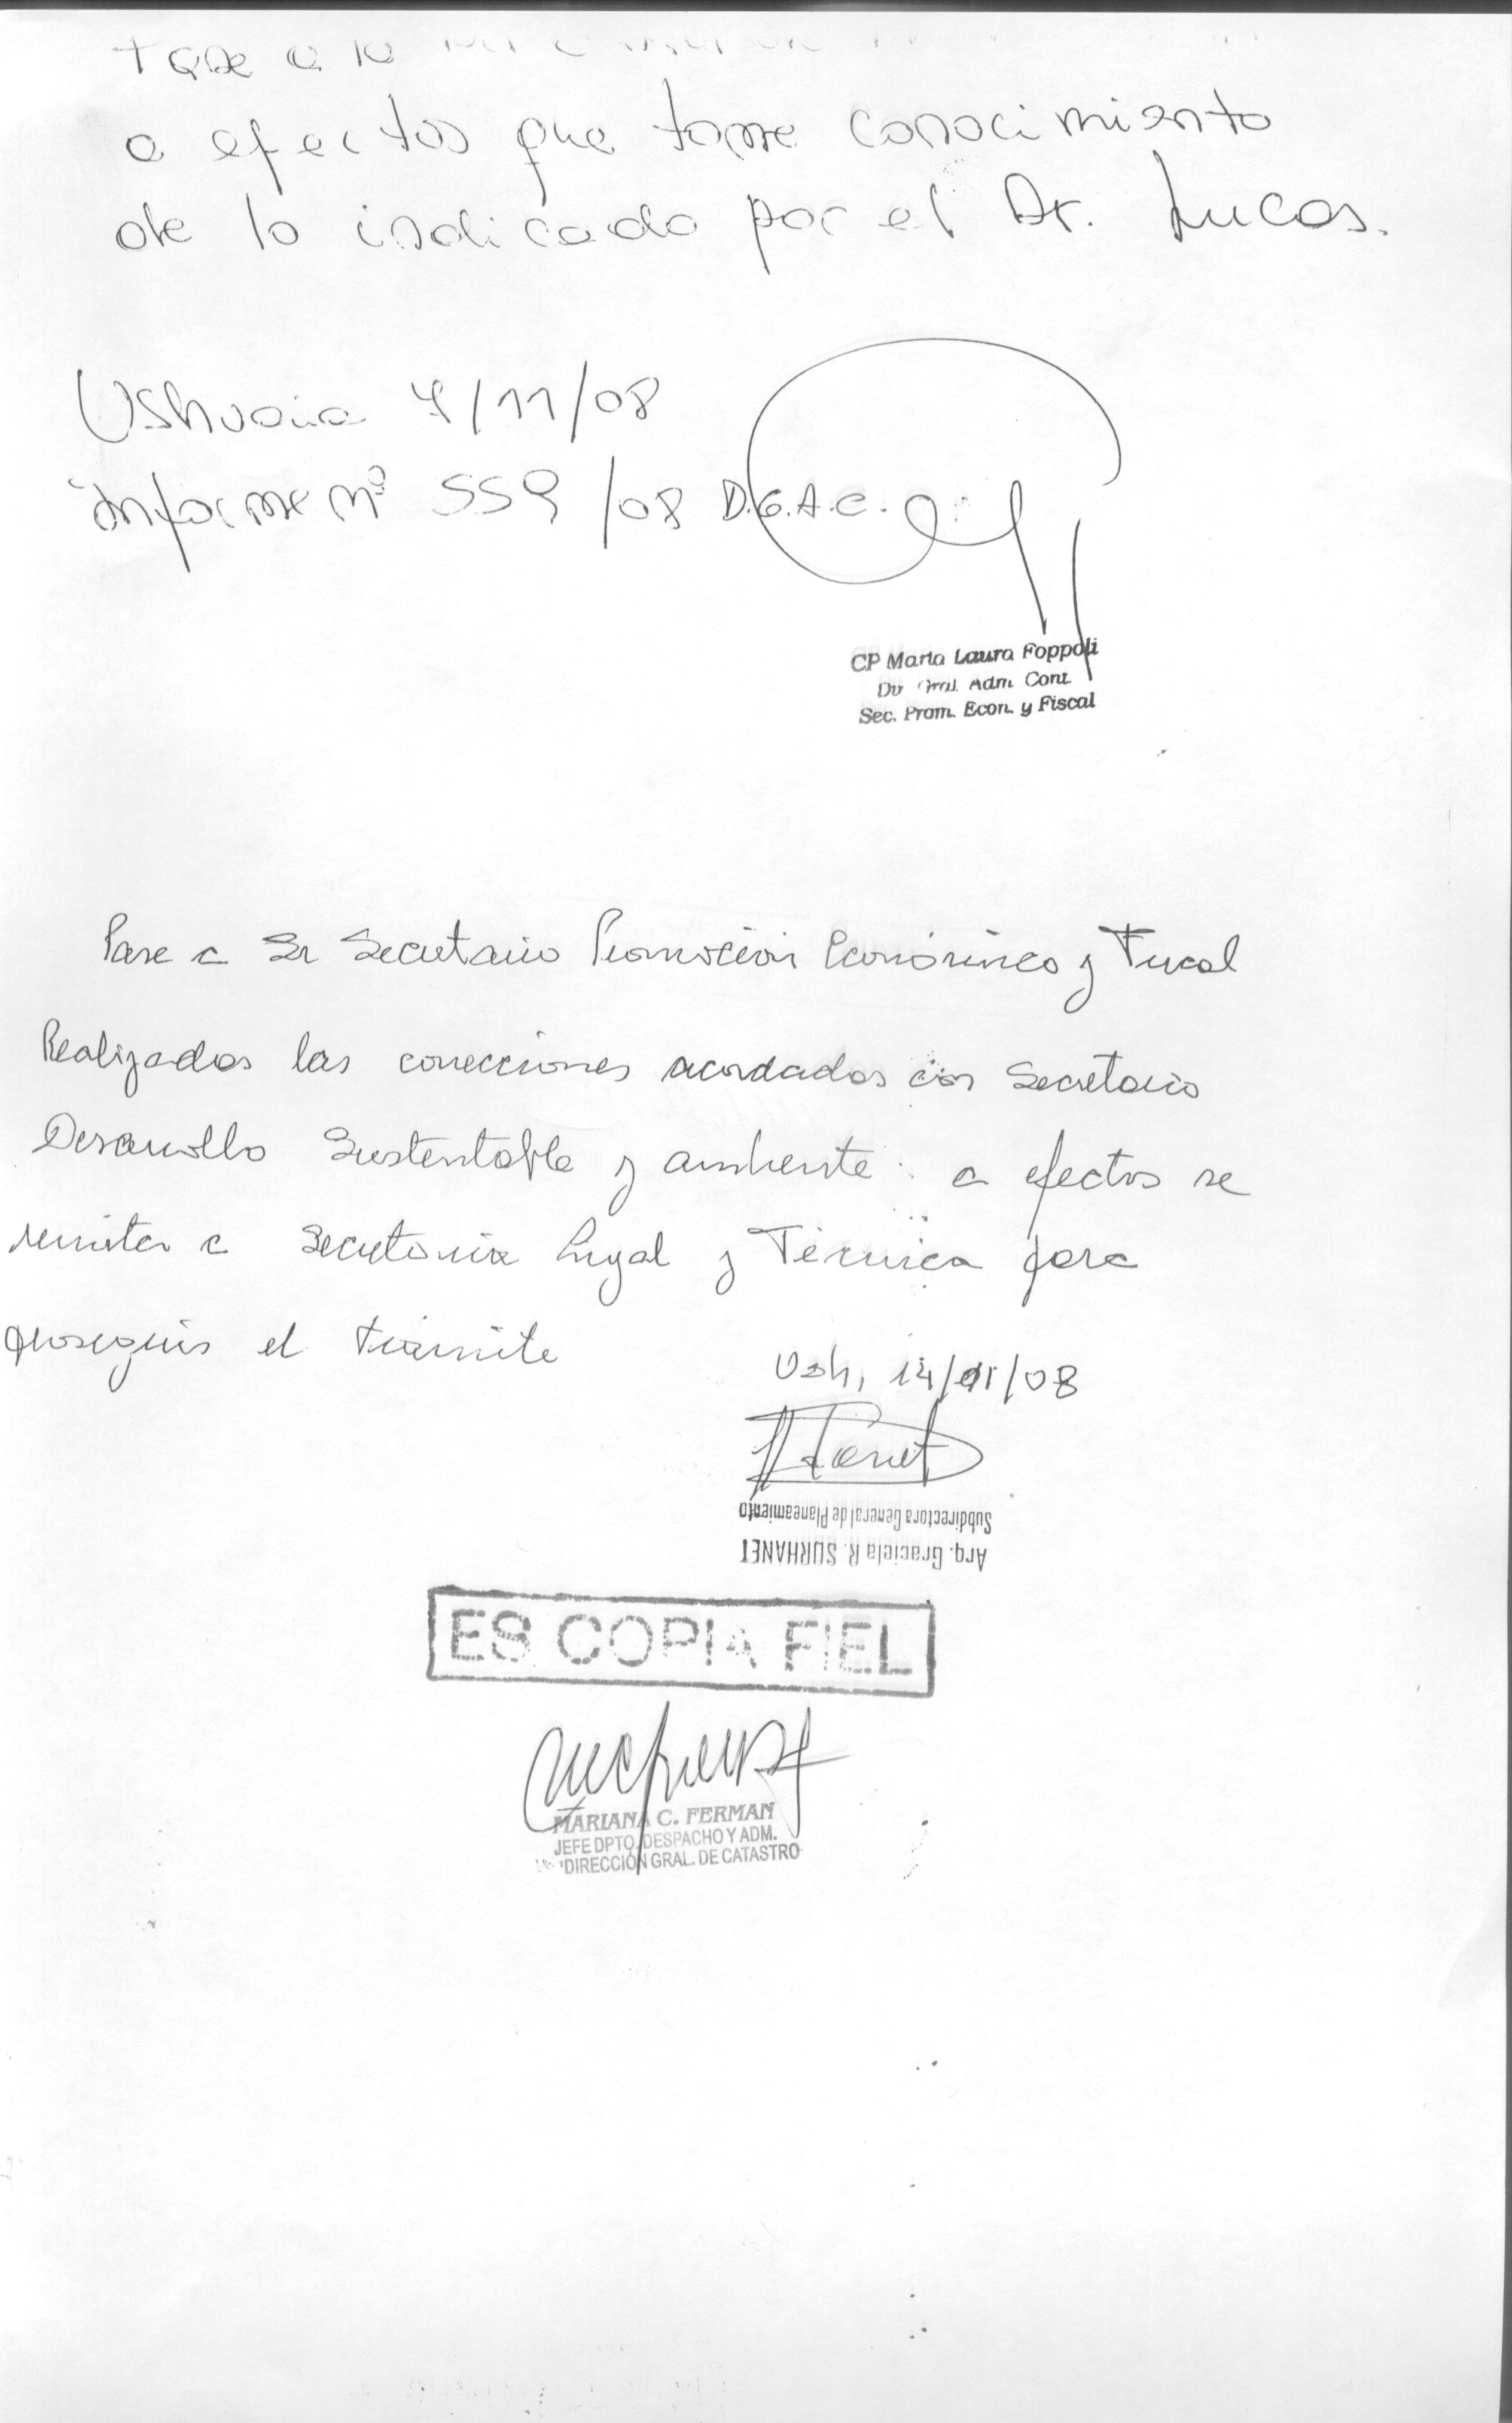 Pase a la
a efectos que tome conocimiento
de lo indicado por el Dr. Lucas.
Ushuaia 7/11/08
Informe Nº 559/08 D.G.A.C.
CP Maria Laura Foppoli
Adm. Cont.
Sec. Prom. Econ. y Fiscal
Pase a Sr Secretario Promoción Económico y Fiscal
Realizados las correcciones acordados con Secretario
Desarrollo Sustentable y ambiente a efectos se
remita a Secretaria Legal y Técnica para
proseguir el tramite
Ush, 14/11/08
Subdirectora General de Planeamiento
Arq. Graciela R. SURHANET
ES COPIA FIEL
MARIANA C. FERMAN
JEFE DPTO. DESPACHO Y ADM.
DIRECCIÓN GRAL. DE CATASTRO